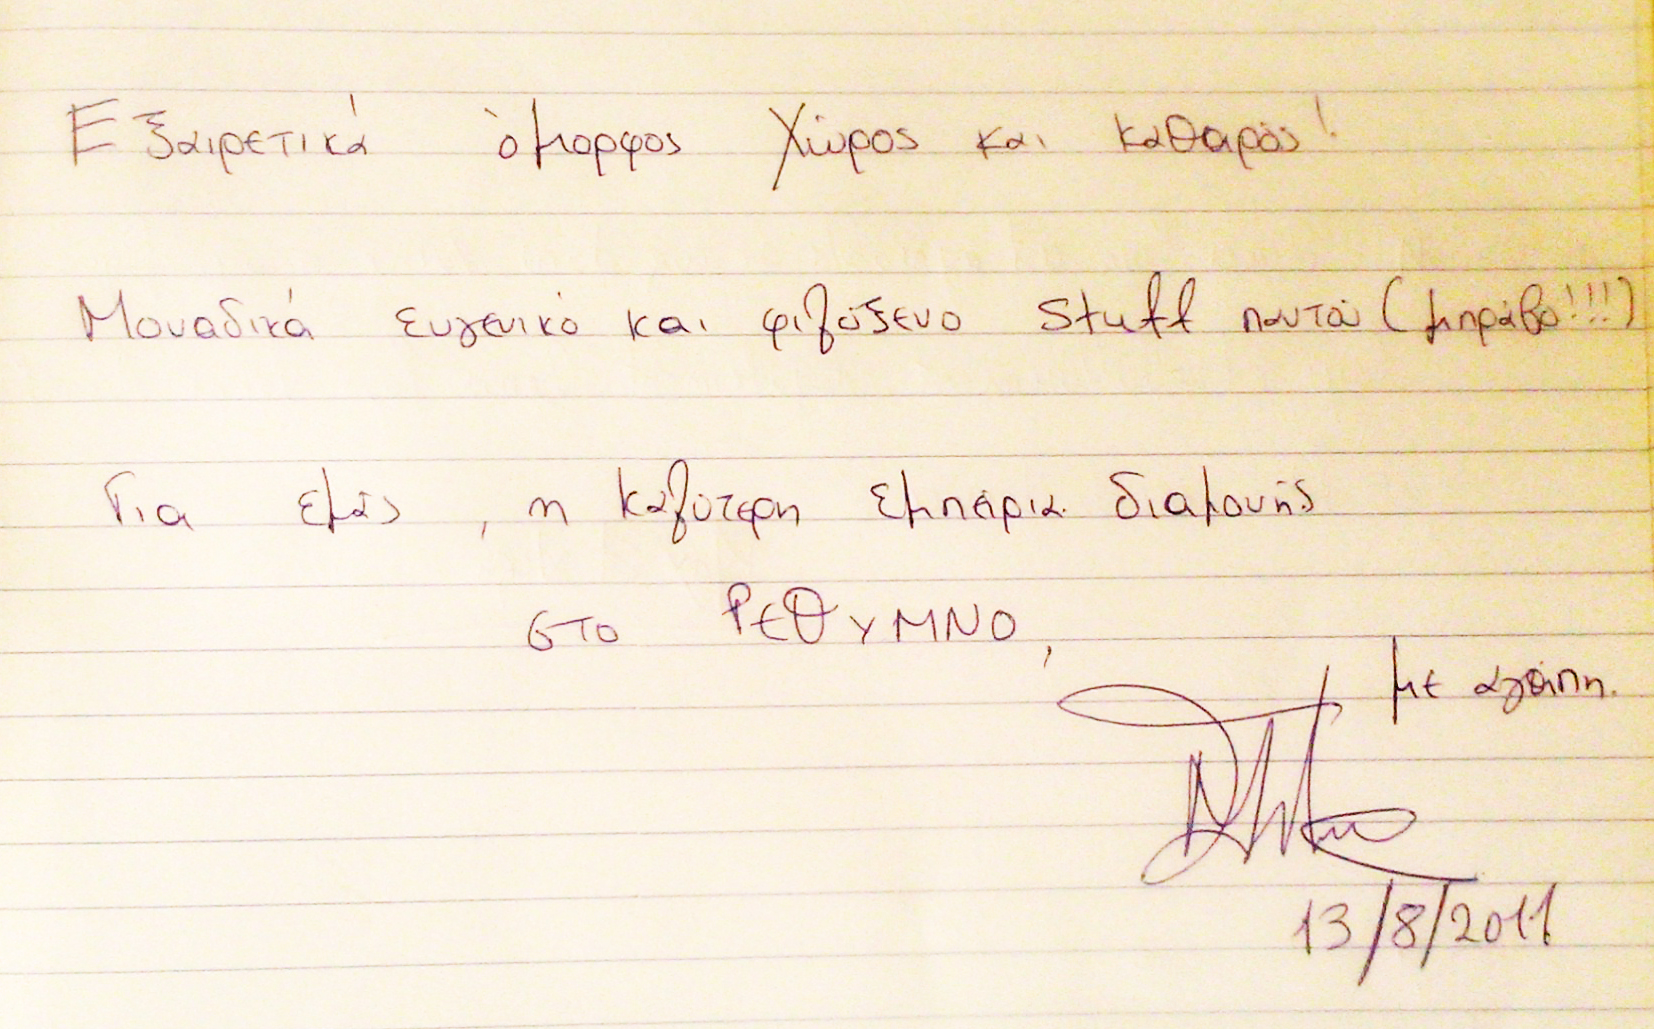 Εξαιρετικά όμορφος Χώρος και καθαρός!
Μοναδικά ευγενικό και φιλόξενο stuff παντού (μπράβο!!!)
Για εμάς, η καλύτερη εμπειρία διαμονής
στο ΡΕΘΥΜΝΟ,
με αγάπη.
13/8/2011